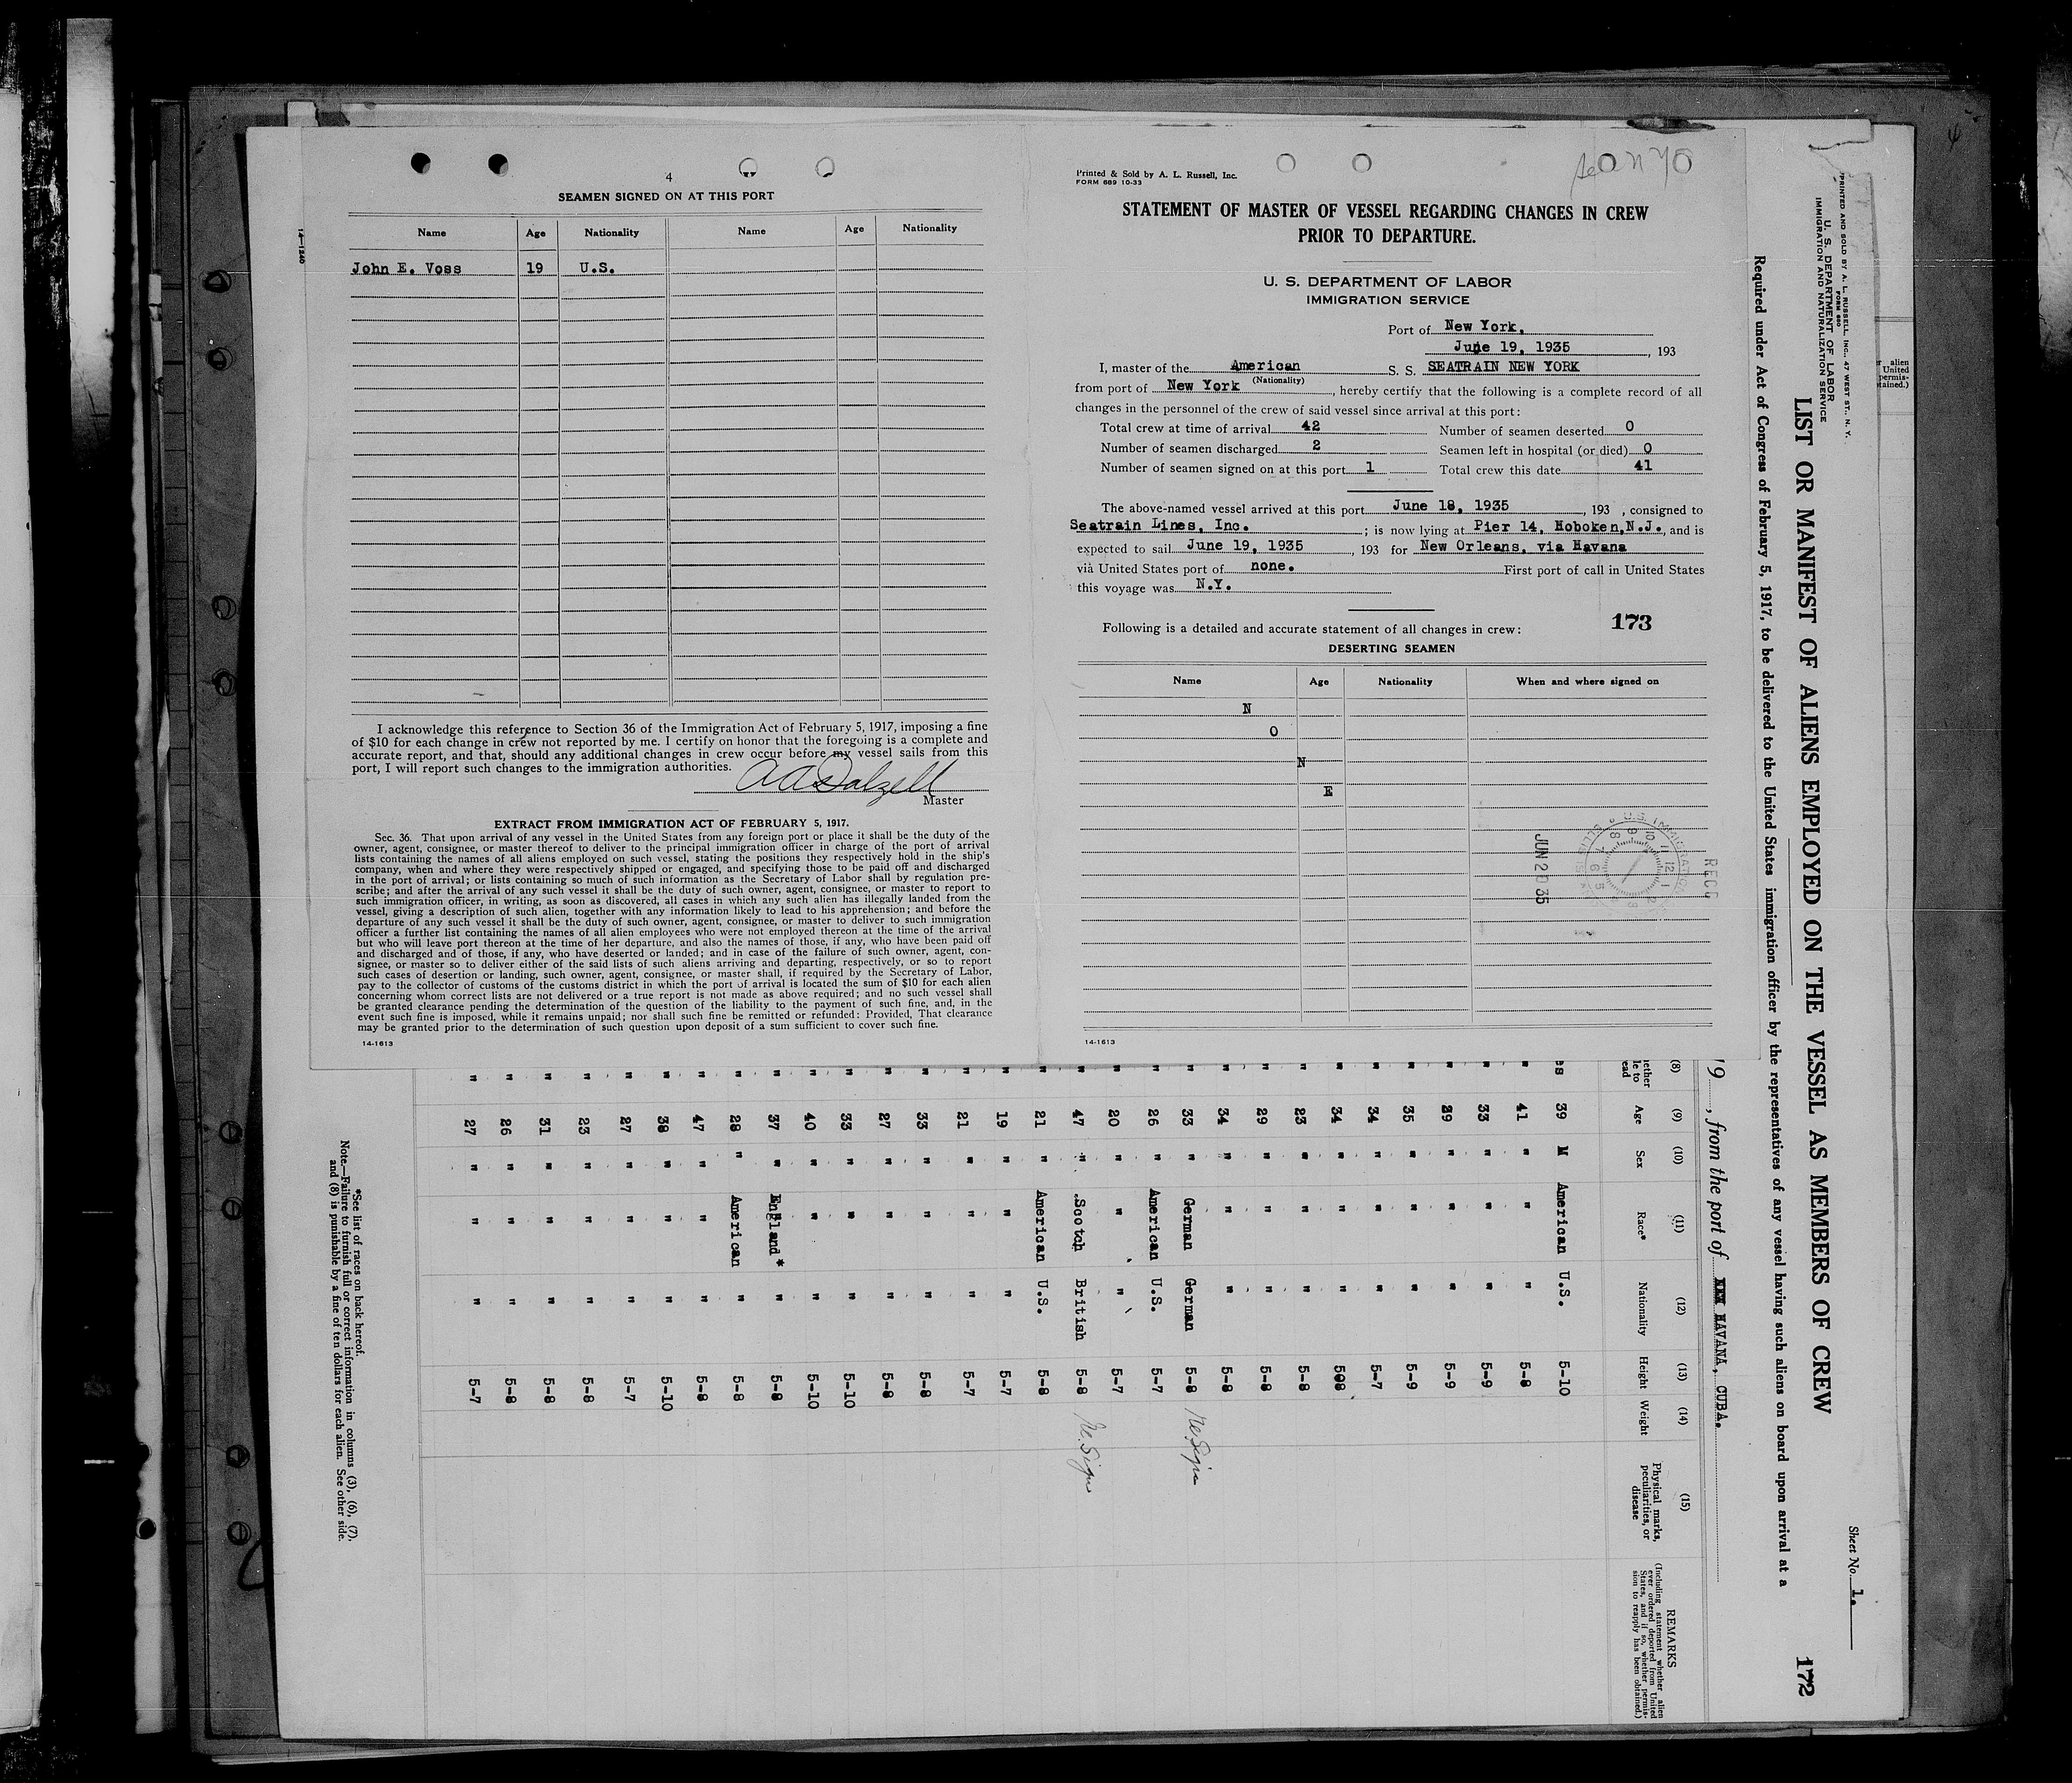 4
SEAMEN SIGNED ON AT THIS PORT
Name Age Nationality Name Age Nationality
John E. Voss 19 U.S.
I acknowledge this reference to Section 36 of the Immigration Act of February 5, 1917, imposing a fine
of $10 for each change in crew not reported by me. I certify on honor that the foregoing is a complete and
accurate report, and that, should any additional changes in crew occur before my vessel sails from this
port, I will report such changes to the immigration authorities.
A A Dalzell
Master
EXTRACT FROM IMMIGRATION ACT OF FEBRUARY 5, 1917.
Sec. 36. That upon arrival of any vessel in the United States from any foreign port or place it shall be the duty of the
owner, agent, consignee, or master thereof to deliver to the principal immigration officer in charge of the port of arrival
lists containing the names of all aliens employed on such vessel, stating the positions they respectively hold in the ship's
company, when and where they were respectively shipped or engaged, and specifying those to be paid off and discharged
in the port of arrival; or lists containing so much of such information as the Secretary of Labor shall by regulation pre-
scribe; and after the arrival of any such vessel it shall be the duty of such owner, agent, consignee, or master to report to
such immigration officer, in writing, as soon as discovered, all cases in which any such alien has illegally landed from the
vessel, giving a description of such alien, together with any information likely to lead to his apprehension; and before the
departure of any such vessel it shall be the duty of such owner, agent, consignee, or master to deliver to such immigration
officer a further list containing the names of all alien employees who were not employed thereon at the time of the arrival
but who will leave port thereon at the time of her departure, and also the names of those, if any, who have been paid off
and discharged and of those, if any, who have deserted or landed; and in case of the failure of such owner, agent, con-
signee, or master so to deliver either of the said lists of such aliens arriving and departing, respectively, or so to report
such cases of desertion or landing, such owner, agent, consignee, or master shall, if required by the Secretary of Labor,
pay to the collector of customs of the customs district in which the port of arrival is located the sum of $10 for each alien
concerning whom correct lists are not delivered or a true report is not made as above required; and no such vessel shall
be granted clearance pending the determination of the question of the liability to the payment of such fine, and, in the
event such fine is imposed, while it remains unpaid; nor shall such fine be remitted or refunded: Provided, That clearance
may be granted prior to the determination of such question upon deposit of a sum sufficient to cover such fine.
14-1613
14-1240
Printed & Sold by A. L. Russell, Inc.
FORM 689 10-33
STATEMENT OF MASTER OF VESSEL REGARDING CHANGES IN CREW
PRIOR TO DEPARTURE.
U. S. DEPARTMENT OF LABOR
IMMIGRATION SERVICE
Port of New York.
June 19, 1935, 193
I, master of the American S. S. SEATRAIN NEW YORK
(Nationality)
from port of New York, hereby certify that the following is a complete record of all
changes in the personnel of the crew of said vessel since arrival at this port:
Total crew at time of arrival 42 Number of seamen deserted 0
Number of seamen discharged 2 Seamen left in hospital (or died) 0
Number of seamen signed on at this port 1 Total crew this date 41
The above-named vessel arrived at this port June 18, 1935, 193 , consigned to
Seatrain Lines, Inc.; is now lying at Pier 14, Hoboken,N.J., and is
expected to sail June 19, 1935, 193 for New Orleans, via Havana
via United States port of none. First port of call in United States
this voyage was N.Y.
173
Following is a detailed and accurate statement of all changes in crew:
DESERTING SEAMEN
Name Age Nationality When and where signed on
N
O
N
E
JUN 20 35
U.S. IMMIGRATION
14-1613
PRINTED AND SOLD BY A. L. RUSSELL, INC., 47 WEST ST., N. Y.
FORM 680
U. S. DEPARTMENT OF LABOR
IMMIGRATION AND NATURALIZATION SERVICE
Sheet No. 1.
LIST OR MANIFEST OF ALIENS EMPLOYED ON THE VESSEL AS MEMBERS OF CREW
172
Required under Act of Congress of February 5, 1917, to be delivered to the United States immigration officer by the representatives of any vessel having such aliens on board upon arrival at a
19 , from the port of HAVANA, CUBA.
(8) (9) (10) (11) (12) (13) (14) (15)
Age Sex Race* Nationality Height Weight Physical marks, peculiarities, or disease
REMARKS
(Including statement whether alien
ever ordered deported from United
States, and if so, whether permis-
sion to reapply has been obtained.)
es 39 M American U.S. 5-10
" 41 " " " 5-8
" 33 " " " 5-9
" 29 " " " 5-9
" 35 " " " 5-9
" 34 " " " 5-7
" 34 " " " 508
" 23 " " " 5-8
" 29 " " " 5-8
" 34 " " " 5-8
" 33 " German German 5-8
" 26 " American U.S. 5-7
" 20 " " " 5-7
" 47 " Scotch British 5-8
" 21 " American U.S. 5-8
" 19 " " " 5-7
" 21 " " " 5-7
" 33 " " " 5-8
" 27 " " " 5-8
" 33 " " " 5-10
" 40 " " " 5-10
" 37 " England * " 5-8
" 28 " American " 5-8
" 47 " " " 5-8
" 38 " " " 5-10
" 27 " " " 5-7
" 23 " " " 5-8
" 31 " " " 5-8
" 26 " " " 5-8
" 27 " " " 5-7
*See list of races on back hereof.
Note.—Failure to furnish full or correct information in columns (3), (6), (7),
and (8) is punishable by a fine of ten dollars for each alien. See other side.
alien
United
permis-
tained.)